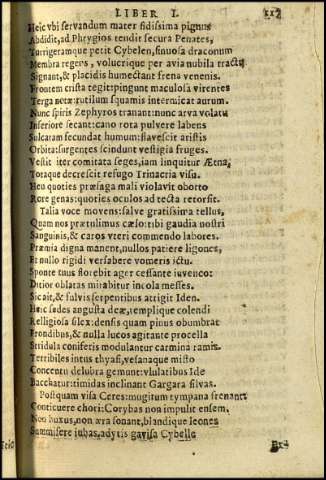 LIBER I.
117
Heic vbi servandum mater fidissima pignus
Abdidit, ad Phrygios tendit secura Penates,
Turrigeramque petit Cybelen, sinuosa draconum
Membra regens, volucrique per avia nubila tractu
Signant, & placidis humectant frena venenis.
Frontem crista tegit: pingunt maculosa virentes
Terga notæ: rutilum squamis intermicat aurum.
Nunc spiris Zephyros tranant: nunc arva volatu
Inferiore secant: cano rota pulvere labens
Sulcatam fecundat humum: flavescit aristis
Orbita: surgentes scindunt vestigia fruges.
Vestit iter comitata seges, iam linquitur Ætna,
Totaque decrescit refugo Trinacria visu.
Heu quoties præsaga mali violavit oborto
Rore genas: quoties oculos ad tecta retorsit.
Talia voce movens: salve gratissima tellus,
Quam nos prætulimus cælo: tibi gaudia nostri
Sanguinis, & caros vteri commendo labores.
Præmia digna manent, nullos patiere ligones,
Et nullo rigidi versabere vomeris ictu.
Sponte tuus florebit ager cessante iuvenco:
Ditior oblatas mirabitur incola messes.
Sic ait, & fulvis serpentibus attigit Iden.
Heic sedes augusta deæ, templique colendi
Relligiosa silex: densis quam pinus obumbrat
Frondibus, & nulla lucos agitante procella
Stridula coniferis modulantur carmina ramis.
Terribiles intus thyasi, vesanaque misto
Concentu delubra gemunt: vlulatibus Ide
Bacchatur: timidas inclinant Gargara silvas.
Postquam visa Ceres: mugitum tympana frenant
Conticuere chori: Corybas non impulit ensem.
Non buxus, non æra sonant, blandique leones
Summisere iubas, adytis gavisa Cybelle